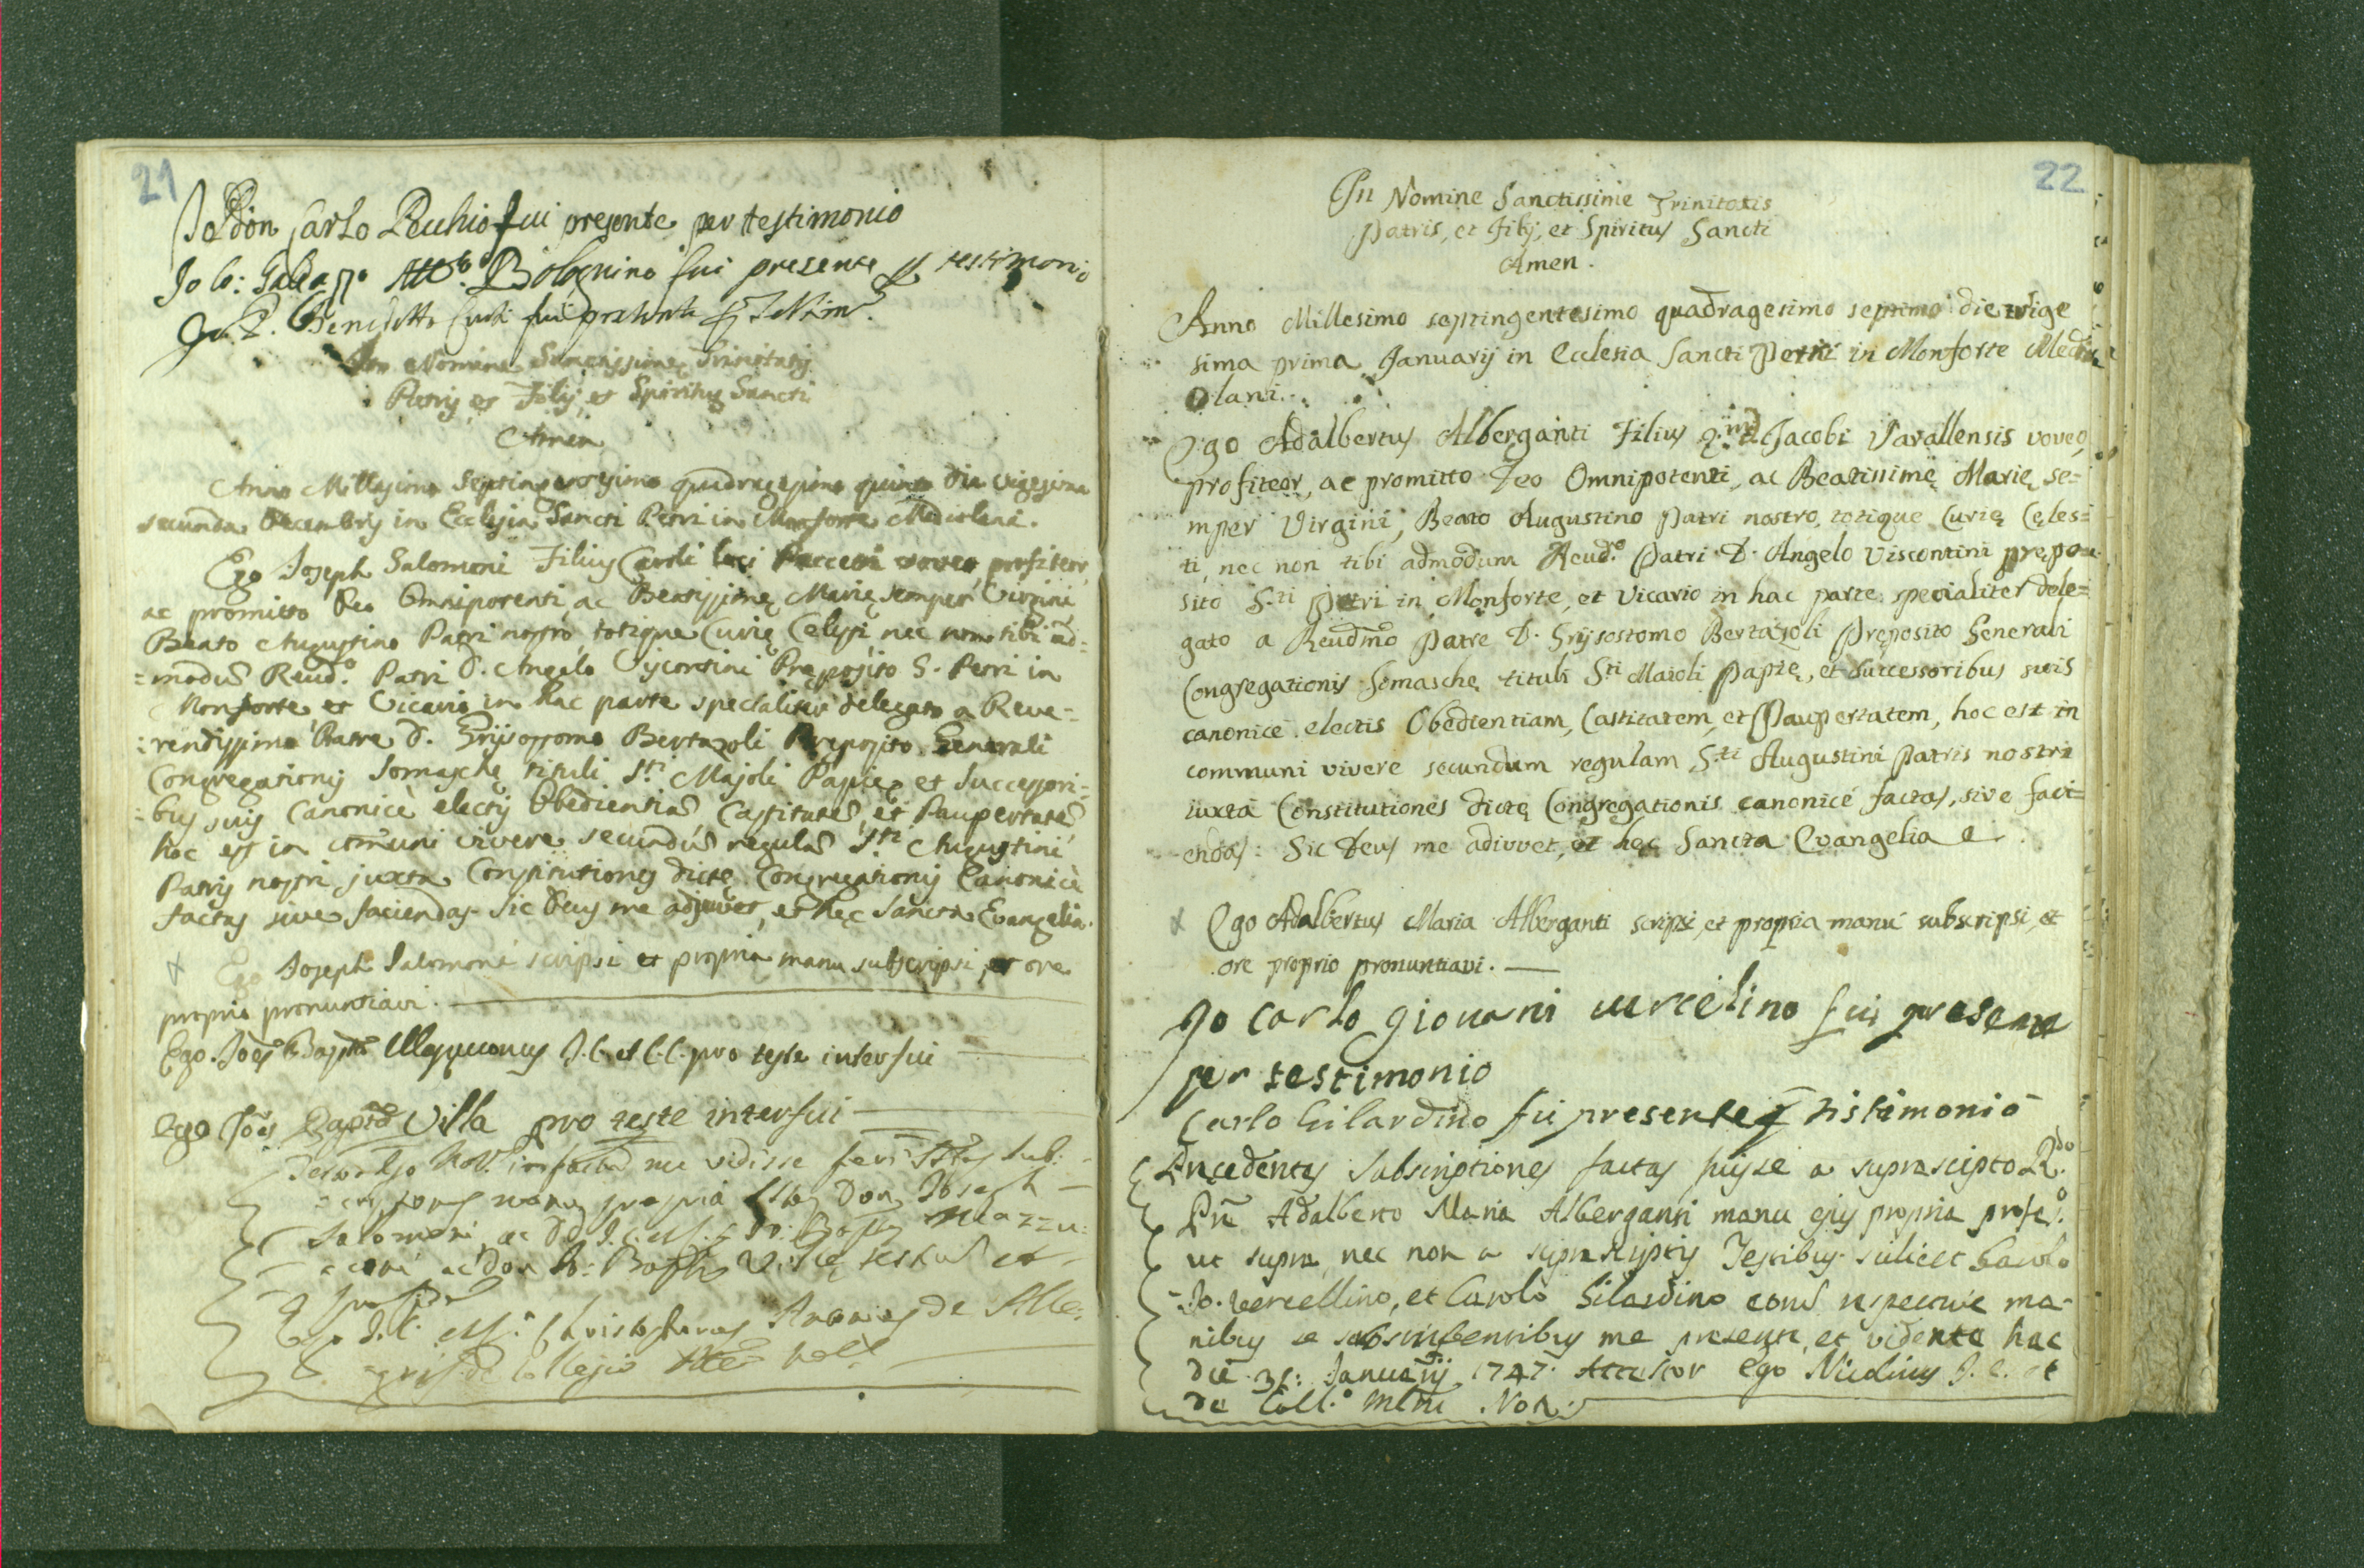 21
Io Don Carlo Pecchio fui presente per testimonio
Io Co: Galeazzo Bolognino fui presente testimonio
Benedetto fui presente
In Nomine Sanctissimę Trinitatis
Patris et Filij et Spiritus Sancti
Amen
Anno Millesimo Septingentesimo quadragesimo quinto die vigesima
secunda Decembris in Ecclesia Sancti Petri in Monforte Mediolani.
Ego Joseph Salomoni Filius Caroli loci voveo, profiteor,
ac promitto Deo Omnipotenti, ac Beatissimę Marię semper Virgini
Beato Augustino Patri nostro, totique Curię Cęlesti, nec non tibi ad=
=modũ Reud.º Patri D. Angelo Viscontini Pręposito S. Petri in
Monforte, et Vicario in hac parte specialiter delegato a Reve=
=rendissimo Patre D. Grisostomo Bertazoli Pręposito Generali
Congregationis Somaschę tituli S.ti Majoli Papię, et Successori=
=bus suis Canonicè electis Obedientiã, Castitatẽ, et Paupertatẽ
hoc est in cõmuni vivere secundũ regulã S.ti Augustini
Patris nostri juxta Constitutiones dictę Congregationis Canonicè
factas sive faciendas. Sic Deus me adjuvet, et hęc Sancta Evangelia.
+ Ego Joseph Salomoni scripsi et propria manu subscripsi, et ore
proprio pronuntiavi.
Ego Joẽs Baptã J.C. et C.C. pro teste interfui
Ego Joẽs Baptã Villa pro teste interfui
me vidisse sub:
manu propria Don Joseph
Salomoni, ac DD. J.C. Jo: Bapta Mazzu:
ac Don Jo: Bapta Villę et
Ego J.C. Christophorus Antonius de
de Collegio
22
In Nomine Sanctissimę Trinitatis
Patris, et Filij, et Spiritus Sancti
Amen.
Anno Millesimo septingentesimo quadragesimo septimo die trige
sima prima Januarij in Ecclesia Sancti Petri in Monforte Medi
olani.
Ego Adalbertus Alberganti Filius Jacobi Varallensis voveo,
profiteor, ac promitto Deo Omnipotenti, ac Beatissimę Marię se=
mper Virgini, Beato Augustino Patri nostro, totique Curię Cęles=
ti, nec non tibi admodum Reud.º Patri D. Angelo Viscontini prępo
sito S.ti Petri in Monforte, et Vicario in hac parte specialiter dele=
gato a Reudmo Patre D. Grisostomo Bertazoli Pręposito Generali
Congregationis Somaschę tituli S.ti Maioli Papię, et Successoribus suis
canonicè electis Obedientiam, Castitatem, et Paupertatem, hoc est in
communi vivere secundum regulam S.ti Augustini Patris nostri
iuxta Constitutiones dictę Congregationis canonicè factas, sive faci=
endas: Sic Deus me adiuvet, et hęc Sancta Evangelia
+ Ego Adalbertus Maria Alberganti scripsi, et propria manu subscripsi, et
ore proprio pronuntiavi.
Io Carlo Giovani vercelino fui presente
per testimonio
Carlo Gilardino fui presente testimonio
Pręcedentes Subscriptiones factas fuisse a suprascripto R.do
Adalberto Maria Alberganti manu ejus propria
ut supra, nec non a suprascriptis Testibus scilicet Carolo
Jo. Vercellino, et Carolo Gilardino respectivè ma-
nibus se subscribentibus me presente, et vidente hac
die 31: Januarij 1747. Attestor Ego J.C. et
de Coll.º Not.